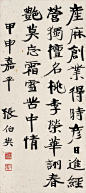 產麻創業得時彥日進經
營獨擅名桃李榮華詡春
艷莫忘霜雪中情
甲申嘉平 張伯英